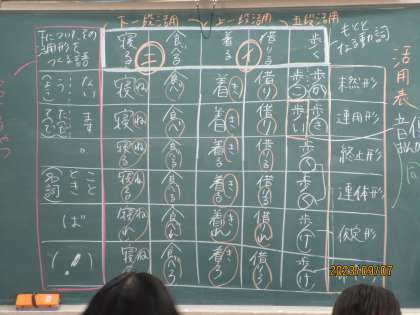 下一段活用 上一段活用 五段活用
活用表
もとになる動詞
歩く
借りる イ
着る
食べる
寝る エ
未然形 歩か 歩こ 借り 着き 食べ 寝ね ない う
連用形 歩き 歩い 借り 着き 食べ 寝ね ます た
終止形 歩く 借りる 着きる 食べる 寝ねる 。
連体形 歩く 借りる 着きる 食べる 寝ねる こと とき 名詞
仮定形 歩け 借りれ 着きれ 食べれ 寝ねれ ば
歩け 借りろ 着きろ 食べろ 寝ねろ (!)
2023/09/07